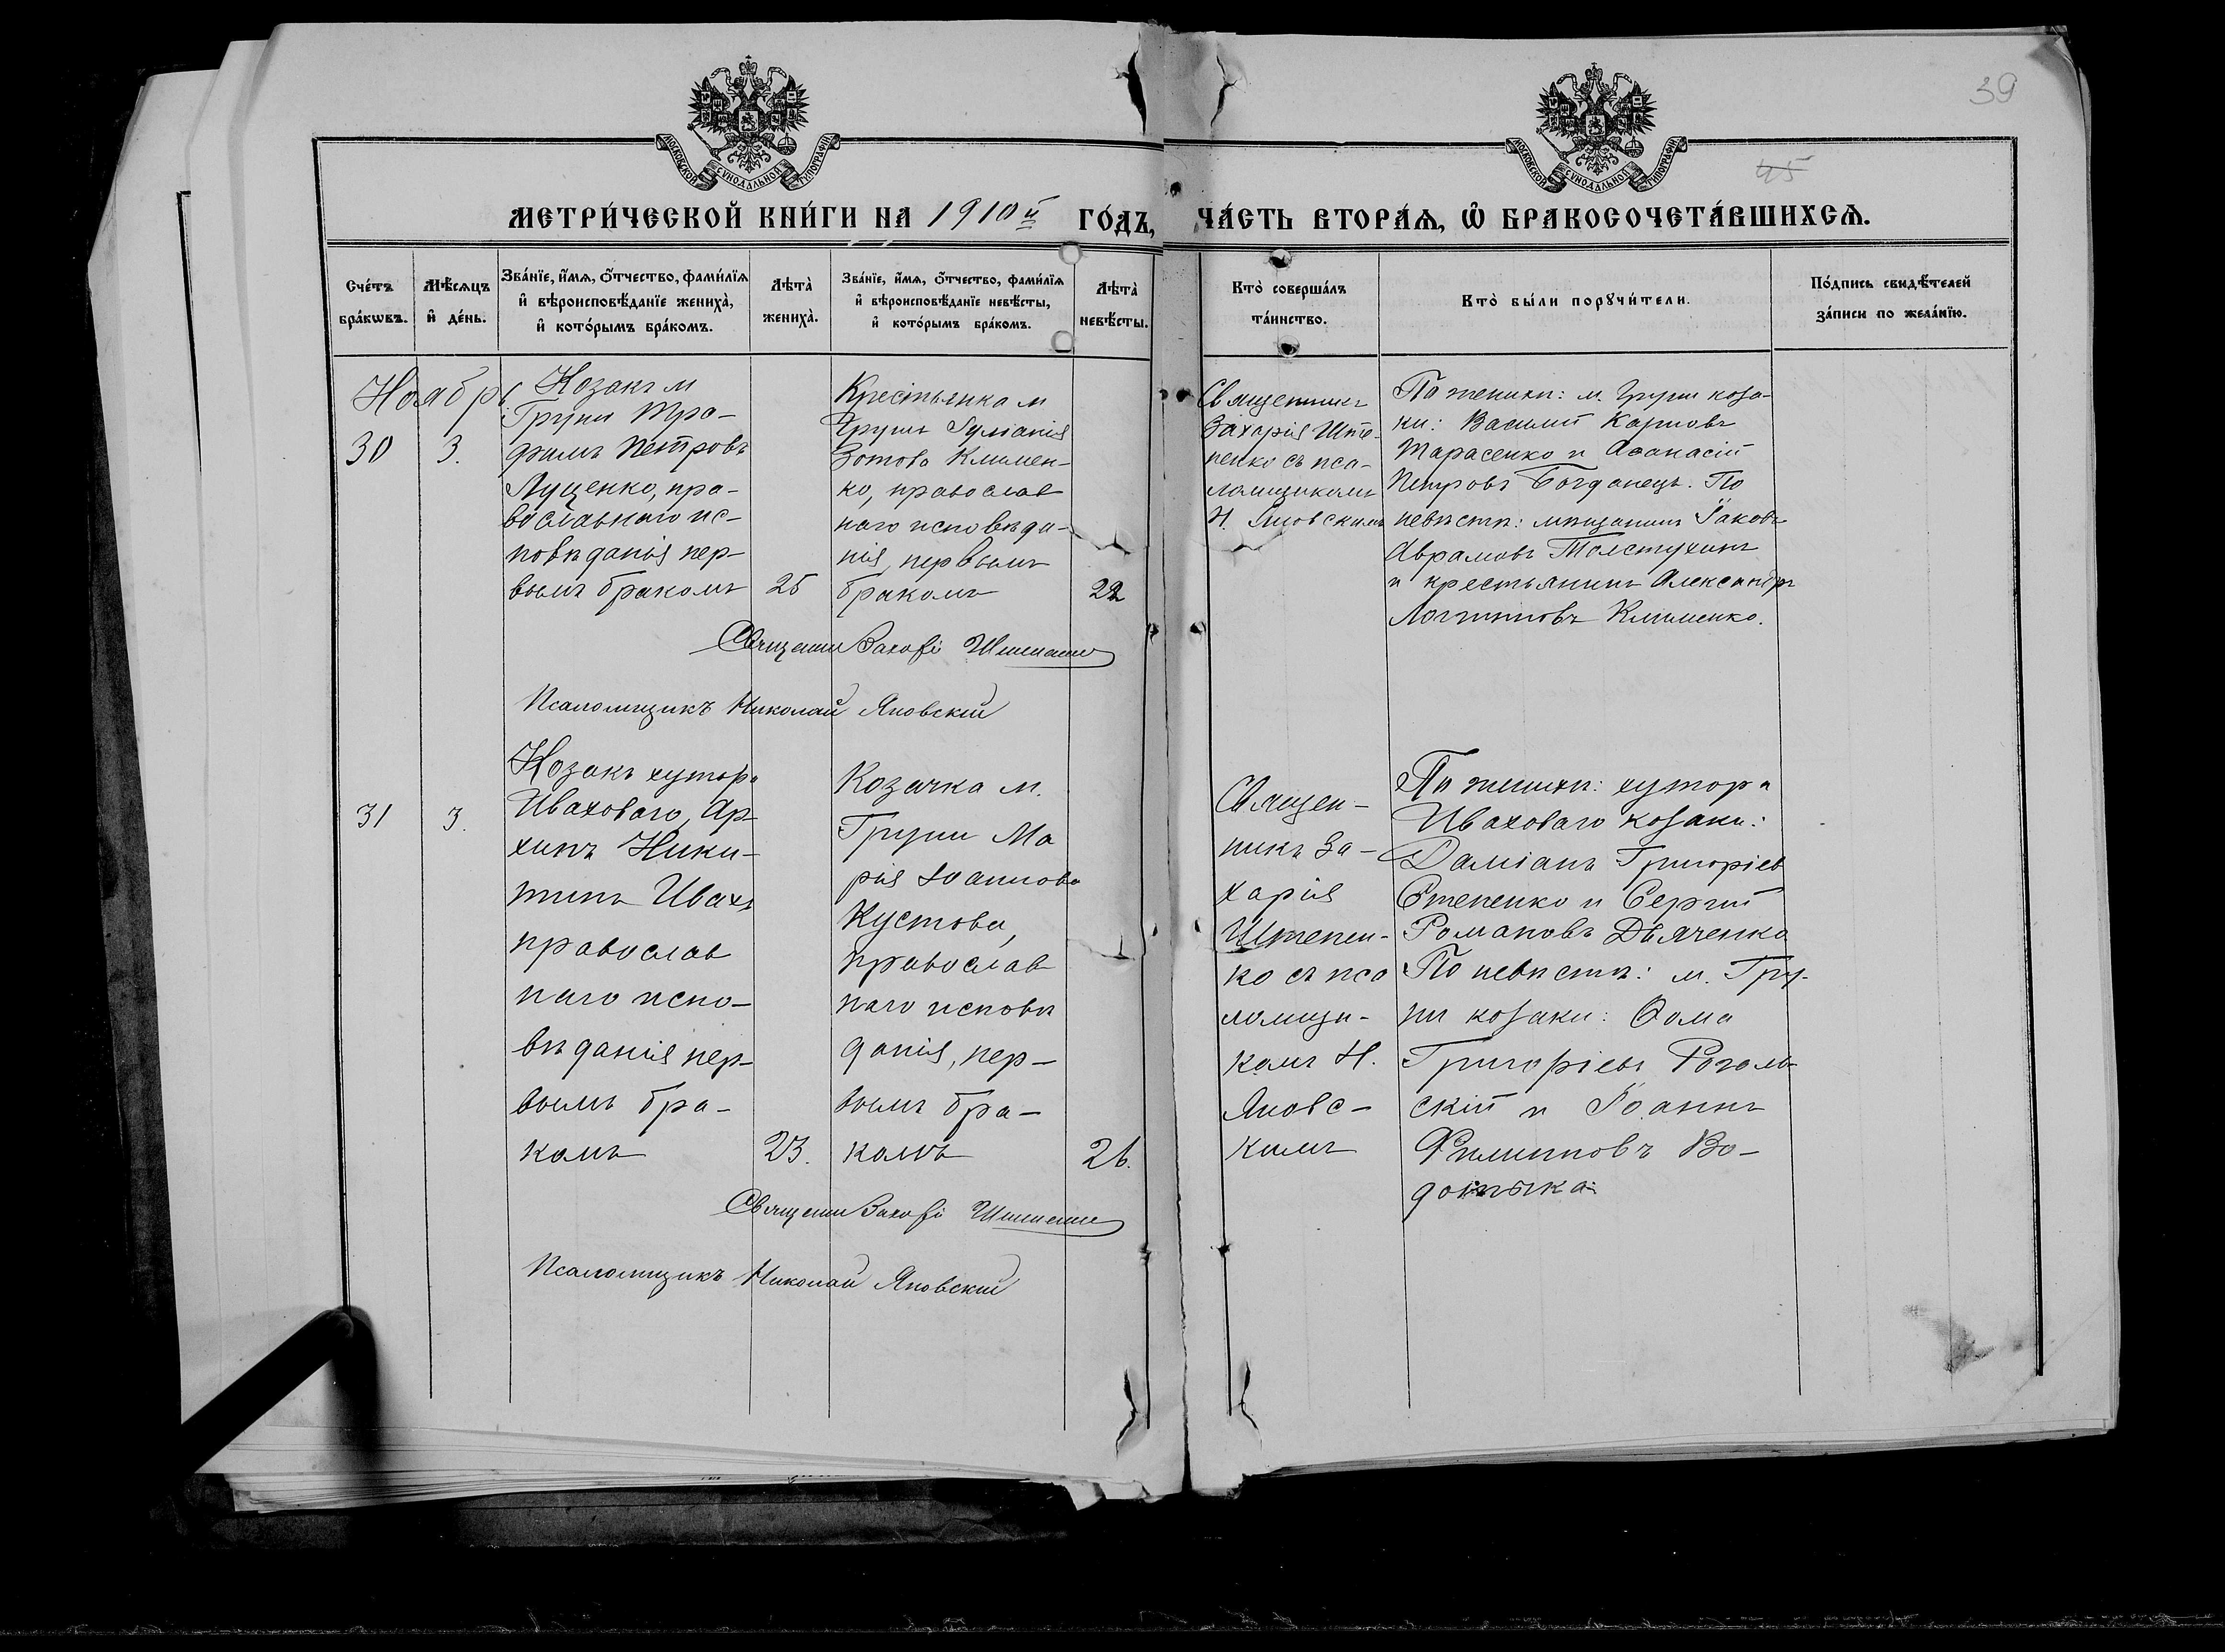 39
45
МОСКОВСКОЙ СѴНОДАЛЬНОЙ ТИПОГРАФІИ
МОСКОВСКОЙ СѴНОДАЛЬНОЙ ТИПОГРАФІИ
МЕТРИ́ЧЕСКОЙ КНИ́ГИ НА 1910й ГО́ДЪ, ЧА́СТЬ ВТОРА́Ѧ, Ѽ БРАКОСОЧЕТА́ВШИХСѦ.
Сче́тъ
бра́кѡвъ.
Мѣ́сяцъ
и҆ де́нь.
Зва́нїе, и҆́мѧ, ѻ҆́тчество, фами́лїѧ
и҆ вѣроисповѣ́данїе жениха̀,
и҆ кото́рымъ бра́комъ.
Лѣта̀
жениха̀.
Зва́нїе, и҆́мѧ, ѻ҆́тчество, фами́лїѧ
и҆ вѣроисповѣ́данїе невѣ́сты,
и҆ кото́рымъ бра́комъ.
Лѣта̀
невѣ́сты.
Кто̀ соверша́лъ
та́инство.
Кто̀ бы́ли порꙋчи́тели.
По́дпись свидѣ́телей
за́писи по жела́нїю.
Ноябрь
30
3.
Козакъ м
Груни Тро-
фимъ Петровъ
Луценко, пра-
вославнаго ис-
повѣданія пер-
вымъ бракомъ
25
Крестьянка м
Груни Іуліанія
Зотова Климен-
ко, православ
наго исповѣда-
нія, первымъ
бракомъ
22
Священникъ
ЗахаріяШте-
пенко съ пса-
ломщикомъ
Н. Яновскимъ
По женихѣ: м. Груни коза-
ки: Василій Карповъ
Тарасенко и Аѳанасій
Петровъ Богданецъ. По
невѣстѣ: мѣщанинъ Іаковъ
Аврамовъ Толстухинъ
и крестьянинъ Александръ
Логгиновъ Клименко.
Псаломщикъ Николай Яновскій
31
3.
Козакъ хутора
Иваховаго, Ар-
хипъ Ники-
тинъ Ивахъ
православ
наго испо-
вѣданія пер-
вымъ бра-
комъ
23.
Козачка м.
Груни Ма
рія Іоаннова
Кустова,
православ-
наго исповѣ
данія, пер-
вымъ бра-
комъ
Священ-
никъ За-
харія
Штепен-
ко съ пса
ломщи-
комъ Н.
Яновс-
кимъ
По женихѣ: хутора
Иваховаго козаки:
Даміанъ Григоріевъ
Степенко и Сергій
Романовъ Дьяченко
По невѣстѣ: м. Гру-
ни козаки: Ѳома
Григоріевъ Рогаль-
скій и Іоаннъ
Филипповъ Во-
Псаломщикъ Николай Яновскій